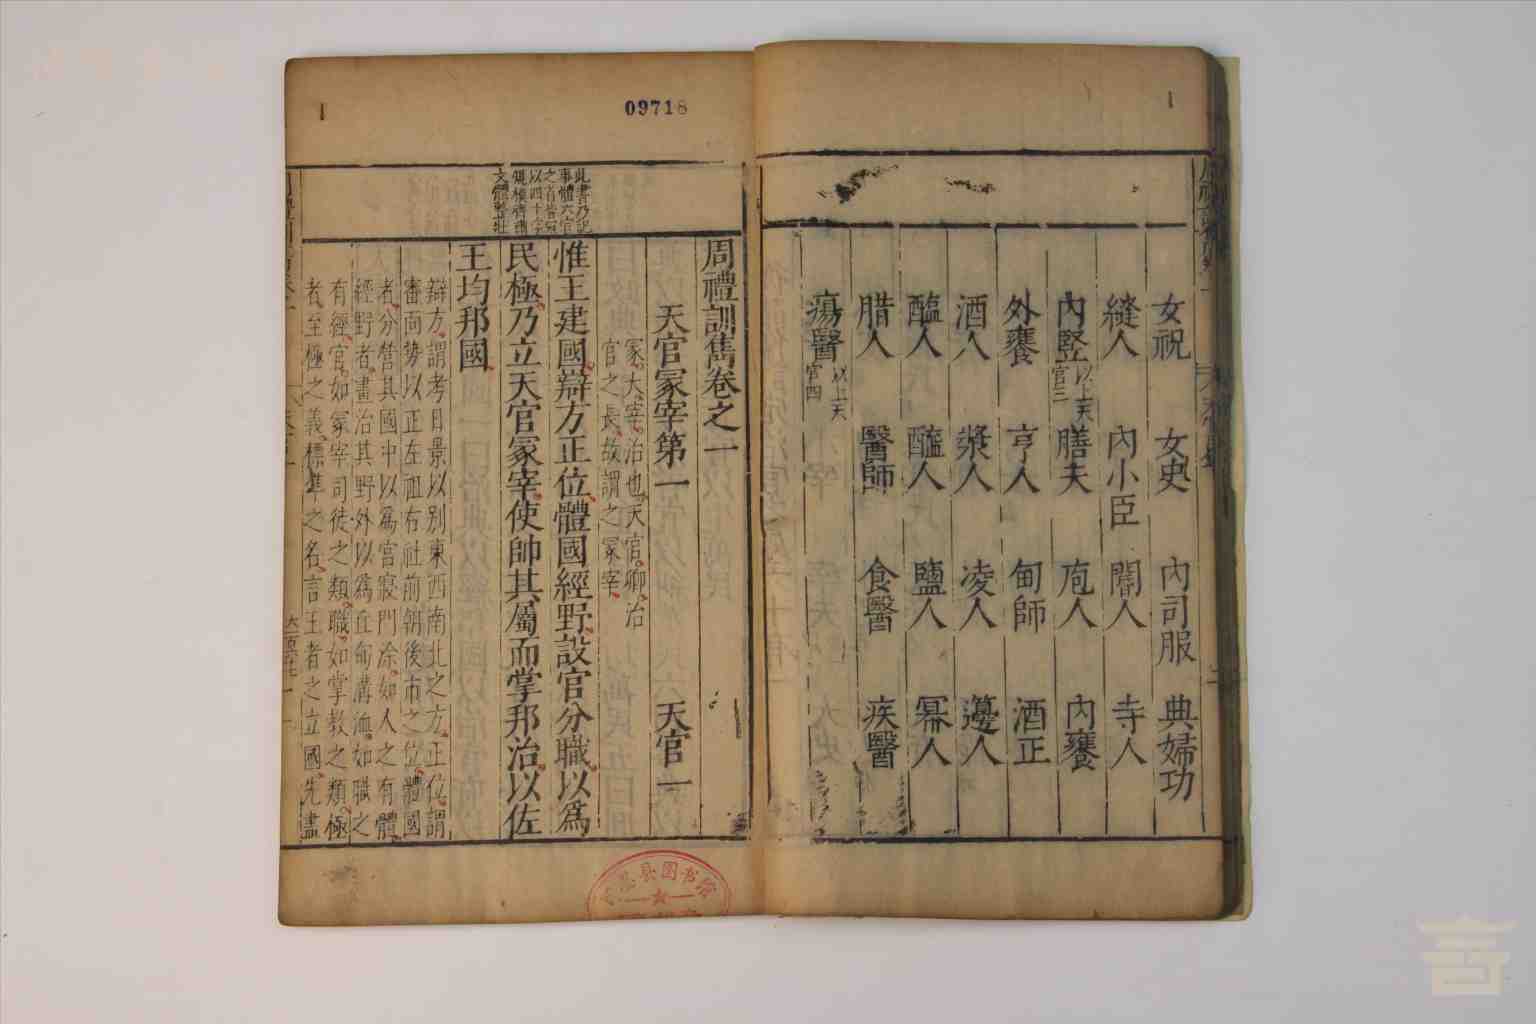 1
女祝 女史 內司服 典婦功
縫人 內小臣 閽人 寺人
內竪 以上天官三 膳夫 庖人 內饔
外饔 亨人 甸師 酒正
酒人 漿人 凌人 籩人
醢人 醯人 鹽人 冪人
腊人 醫師 食醫 疾醫
瘍醫 以上天官四
09718
1
周禮訓雋卷之一
天官冢宰第一 天官一
冢大宰治也天官卿治
官之長故謂之冢宰
此書乃記
事體六官
之首皆冠
以四十字
規模齊整
文體整壯
惟王建國辯方正位體國經野設官分職以爲
民極乃立天官冢宰使帥其屬而掌邦治以佐
王均邦國
辯方謂考日景以別東西南北之方正位謂
審面勢以正左祖右社前朝後市之位體國
者分營其國中以爲宮寢門涂如人之有體
經野者畫治其野外以爲丘甸溝洫如職之
有經官如冢宰司徒之類職如掌教之類極
者至極之義標準之名言王者之立國先盡
县图书馆